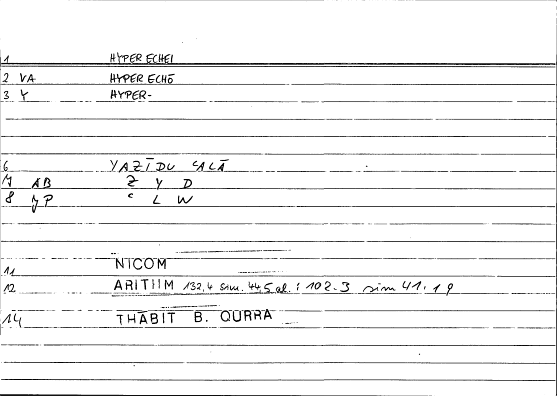 1 HYPERECHEI
2 VA HYPERECHŌ
3 Y HYPER-
6 YAZĪDU ʿALĀ
7 AB Z Y D
8 YP ʿ L W
11 NICOM
12 ARITIIM 132,4 sim. 44,5 al. : 102.3 sim 41,19
14 THĀBIT B. QURRA